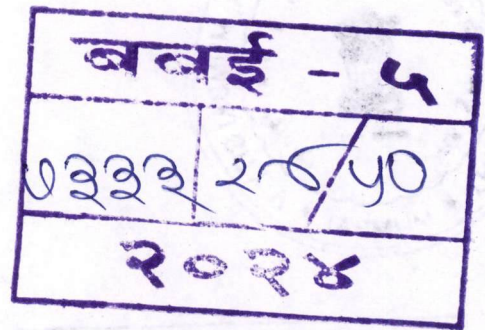 बबई - ५
७३३३ २९/५०
२०२४